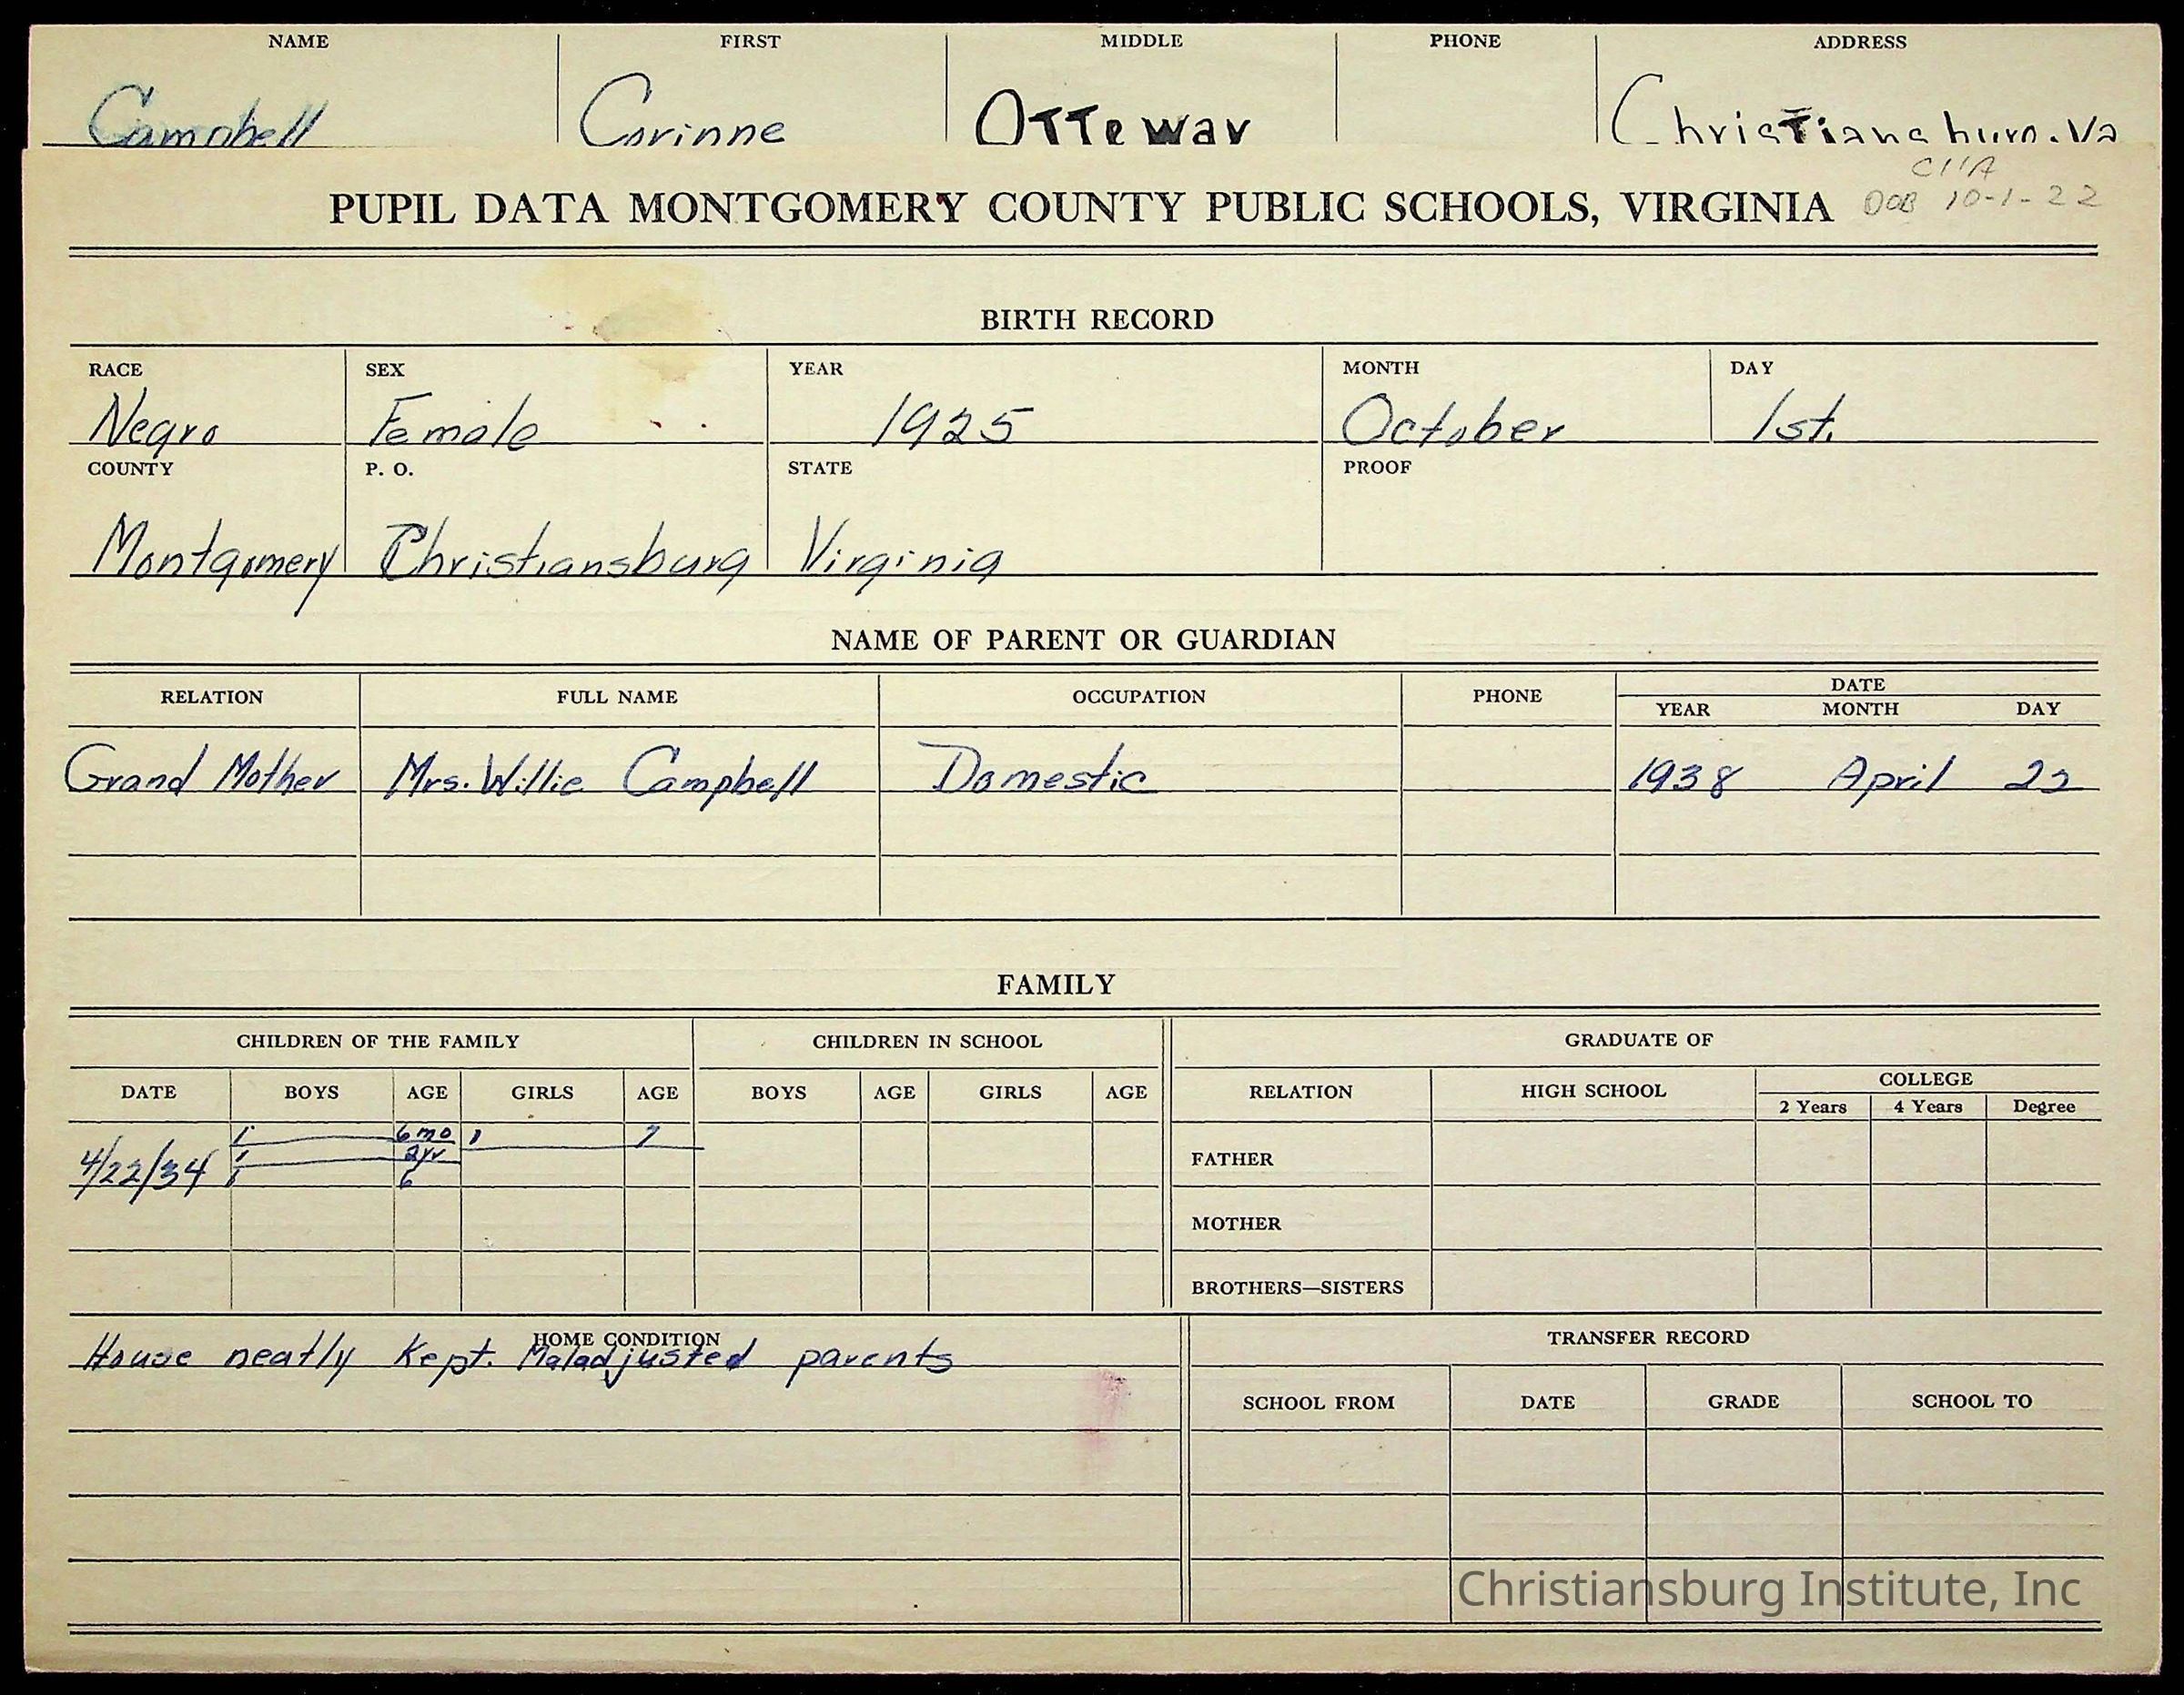 NAME FIRST MIDDLE PHONE ADDRESS
Campbell Corinne Otteway Christiansburg. Va
PUPIL DATA MONTGOMERY COUNTY PUBLIC SCHOOLS, VIRGINIA DOB 10-1-22
BIRTH RECORD
RACE SEX YEAR MONTH DAY
Negro Female 1925 October 1st.
COUNTY P. O. STATE PROOF
Montgomery Christiansburg Virginia
NAME OF PARENT OR GUARDIAN
RELATION FULL NAME OCCUPATION PHONE DATE
YEAR MONTH DAY
Grand Mother Mrs. Willie Campbell Domestic 1938 April 22
FAMILY
CHILDREN OF THE FAMILY CHILDREN IN SCHOOL GRADUATE OF
DATE BOYS AGE GIRLS AGE BOYS AGE GIRLS AGE RELATION HIGH SCHOOL COLLEGE
2 Years 4 Years Degree
1 6 mo 1 7
1 2yr
4/22/34 1 6
FATHER
MOTHER
BROTHERS—SISTERS
HOME CONDITION TRANSFER RECORD
House neatly Kept. Maladjusted parents
SCHOOL FROM DATE GRADE SCHOOL TO
Christiansburg Institute, Inc